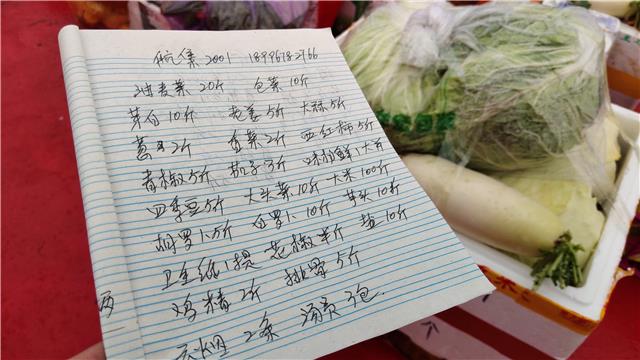 2001 18996782766
油麦菜 20斤 包菜 10斤
茅白 10斤 老姜 5斤 大蒜 5斤
葱子 2斤 香菜 2斤 西红柿 5斤
青椒 5斤 茄子 3斤 味极鲜 1大
四季豆 5斤 大头菜 10斤 大米 100斤
胡罗卜 5斤 白罗卜 10斤 芋头 10斤
卫生纸 1提 花椒 半斤 盐 10斤
鸡精 2斤 排骨 5斤
2条 汤员 3包